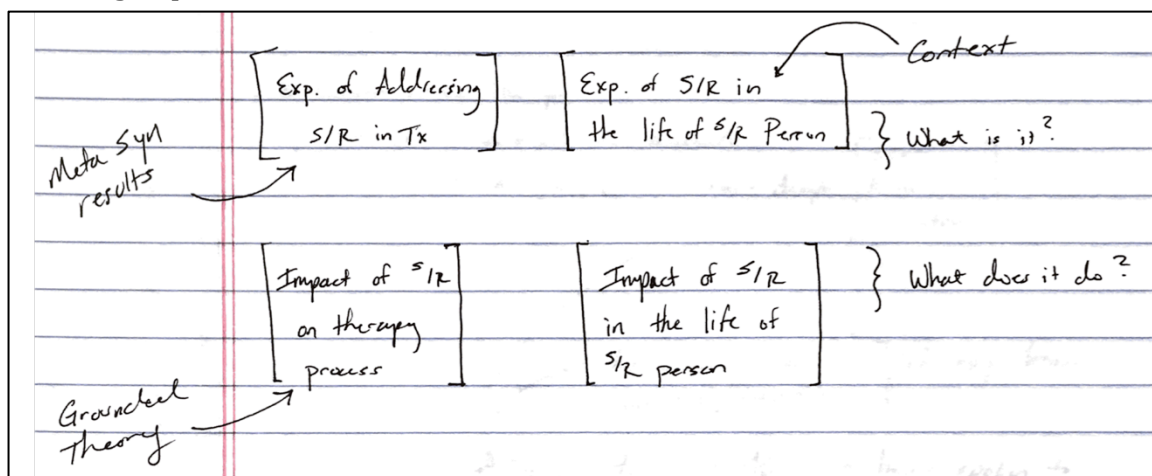 Context
Exp. of Addressing
S/R in Tx
Exp. of S/R in
the life of S/R Person
} What is it?
Meta Syn
results
Impact of S/R
on therapy
process
Impact of S/R
in the life of
S/R person
} What does it do?
Grounded
Theory